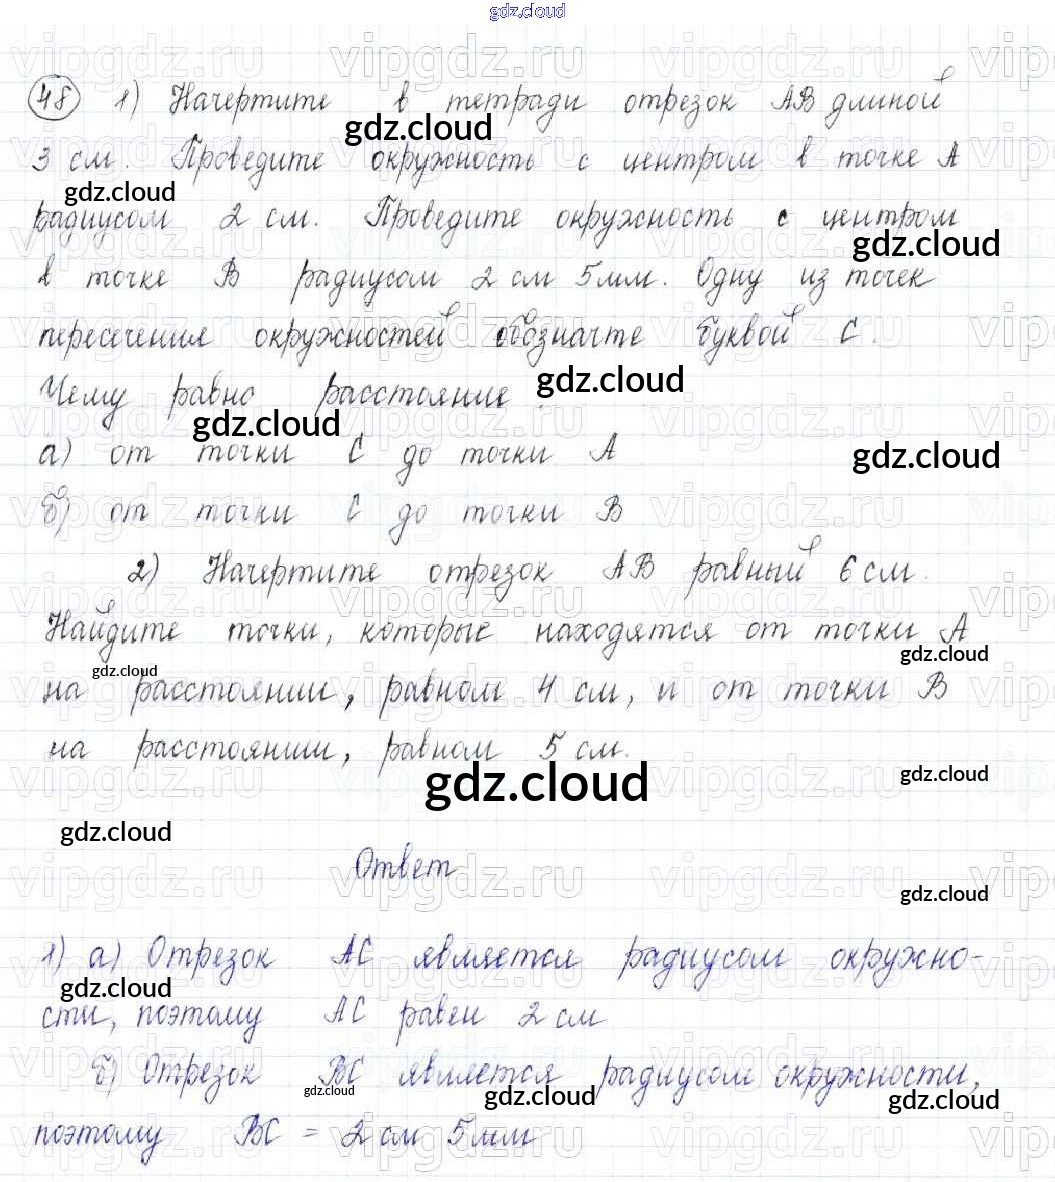 gdz.cloud
48 1) Начертите в тетради отрезок AB длиной
3 см. Проведите окружность с центром в точке A
радиусом 2 см. Проведите окружность с центром
в точке B радиусом 2 см 5 мм. Одну из точек
пересечения окружностей обозначте буквой C.
Чему равно расстояние :
а) от точки C до точки A
б) от точки C до точки B
2) Начертите отрезок AB равный 6 см.
Найдите точки, которые находятся от точки A
на расстоянии, равном 4 см, и от точки B
на расстоянии, равном 5 см.
Ответ
1) а) Отрезок AC является радиусом окружно-
сти, поэтому AC равен 2 см
б) Отрезок BC является радиусом окружности,
поэтому BC = 2 см 5 мм